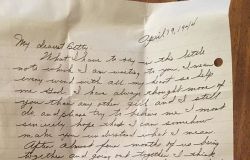 April 19, 1944
My dearest Betty,
What I have to say in the little
note which I am writing to you, I mean
every word with all my heart so help
me God. I have always thought more of
you than any other girl and I still
do, and please try to believe me. I most
sincerely hope that I can somehow
make you understand what I mean.
After about four months of us being
together and going out together I think